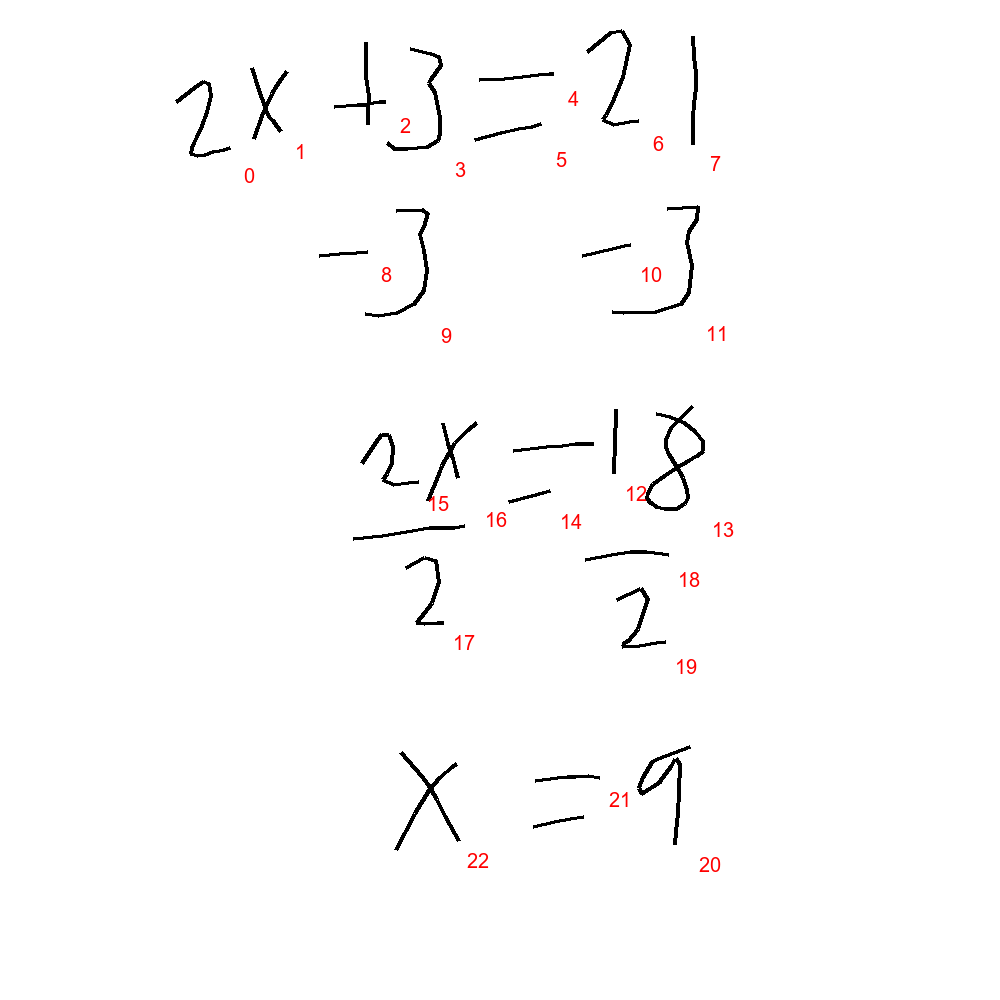 2x + 3 = 21
0 1 2 3 4 5 6 7
- 3 - 3
8 9 10 11
2x = 18
15 16 14 12 13
2 2
17 18 19
x = 9
22 21 20